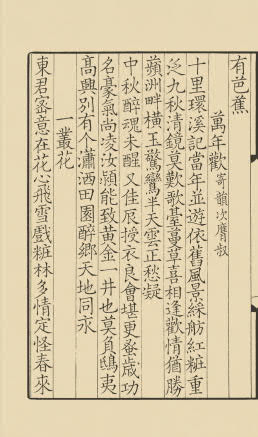 有芭蕉
萬年歡寄韻次膺叔
十里環溪記當年並遊依舊風景綵舫紅粧重
泛九秋清鏡莫歎歌臺蔓草喜相逢歡情猶勝
蘋洲畔橫玉驚鸞半天雲正愁凝
中秋醉魂未醒又佳辰授衣良會堪更蚤歲功
名豪氣尚凌汝潁能致黃金一井也莫負鴟夷
高興別有个瀟洒田園醉鄉天地同永
一叢花
東君密意在花心飛雪戲粧林多情定怪春來